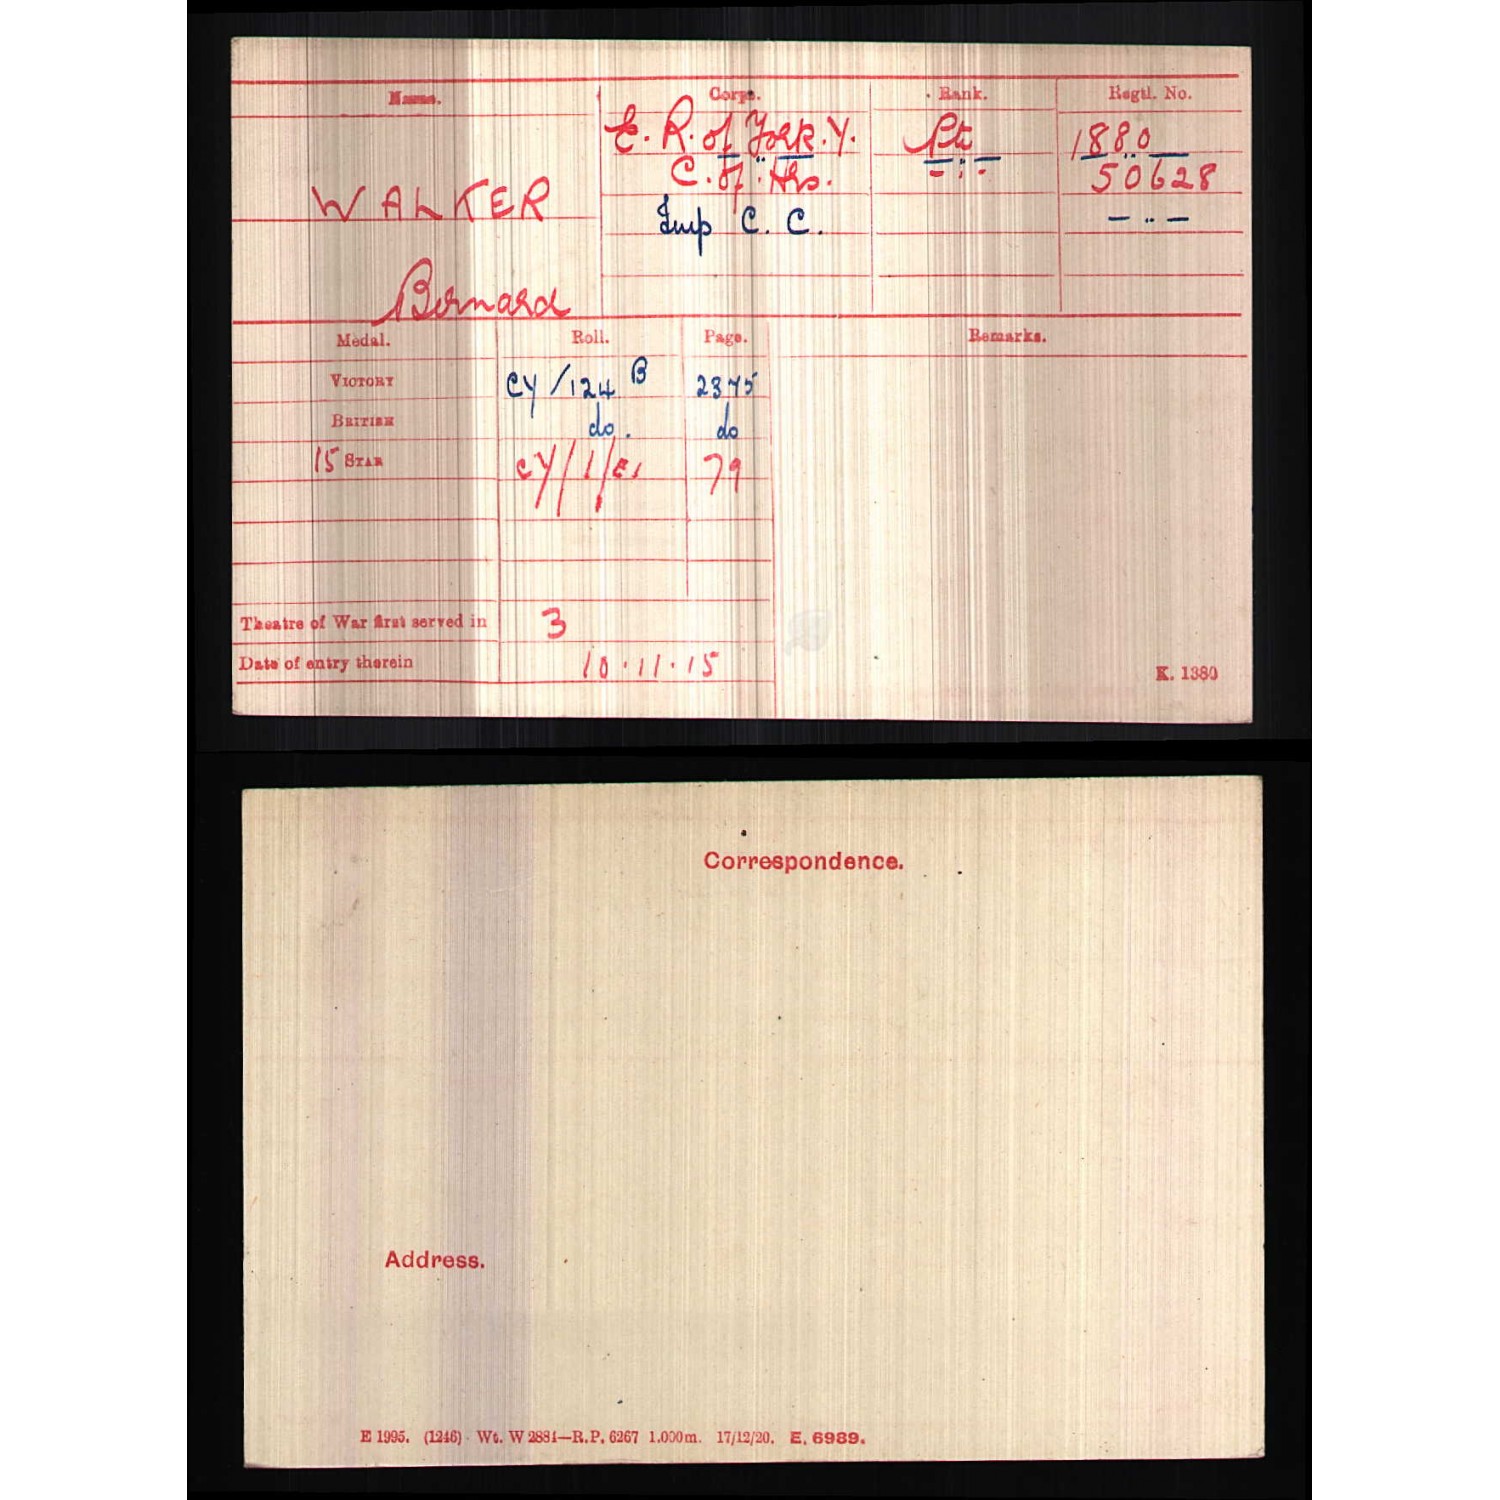 Name. Corps. Rank. Regtl. No.
E. R. of York. Y. Pte 1880
C. of Hrs. - " - 50628
WALKER
Imp C. C. - " -
Bernard
Medal. Roll. Page. Remarks.
VICTORY CY/124 B 2375
BRITISH do. do
15 STAR CY/1/E1 79
Theatre of War first served in 3
Date of entry therein 10.11.15
K. 1380
Correspondence.
Address.
E 1995. (1246) Wt. W 2884—R.P. 6267 1,000m. 17/12/20. E. 6989.